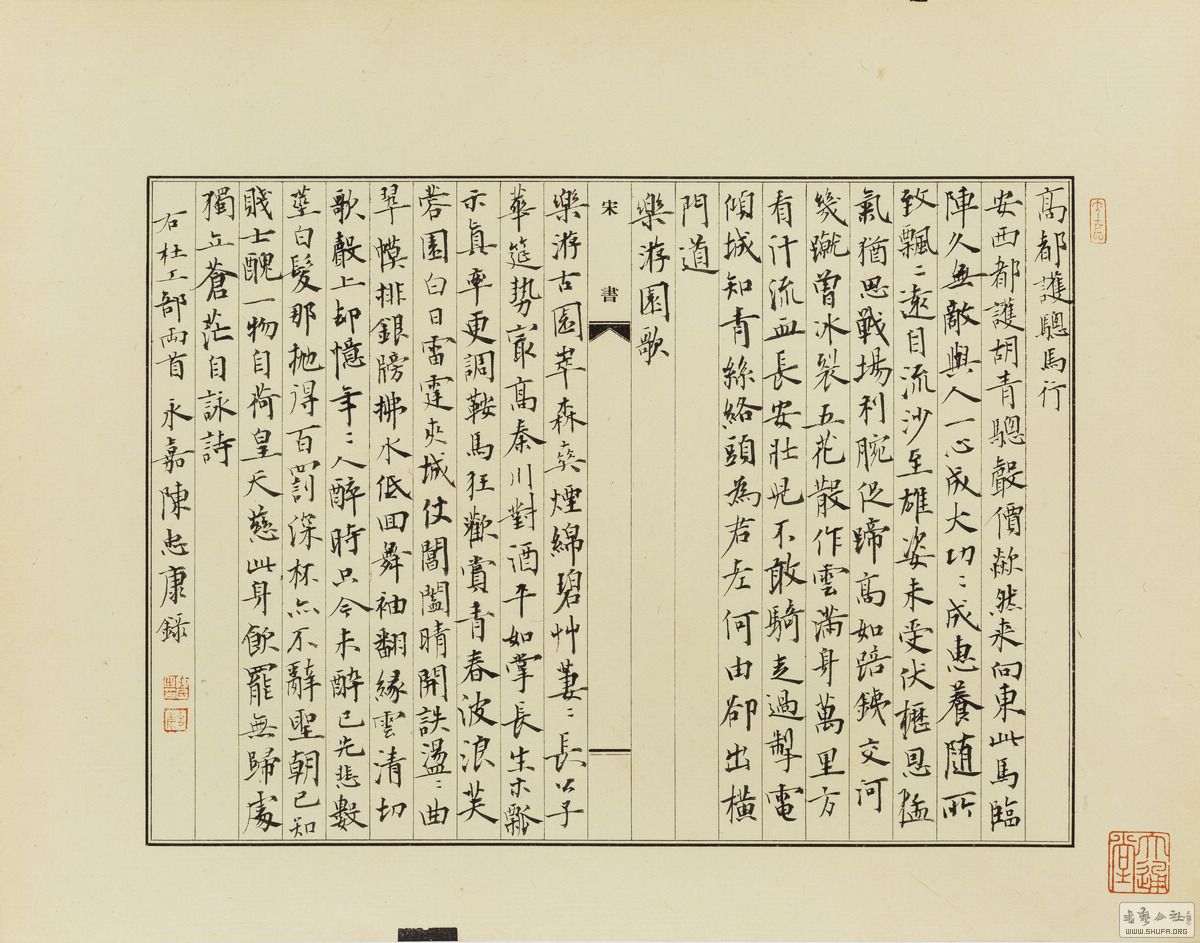 高都護驄馬行
安西都護胡青驄聲價欻然来向東此馬臨
陣久無敵與人一心成大功〻成惠養随所
致飄〻遠自流沙至雄姿未受伏櫪恩猛
氣猶思戰場利腕促蹄高如踣銕交河
幾蹴曾冰裂五花散作雲滿身萬里方
看汗流血長安壯兒不敢騎走過掣電
傾城知青絲絡頭為君老何由卻出橫
門道
樂游園歌
宋書
樂游古園崒森爽煙綿碧艸萋〻長公子
華筵勢最高秦川對酒平如掌長生木瓢
示真率更調鞍馬狂歡賞青春波浪芙
蓉園白日雷霆夾城仗閶闔晴開詄蕩〻曲
翠幙排銀牓拂水低回舞袖翻緣雲清切
歌聲上却憶年〻人醉時只今未醉已先悲數
莖白髮那抛得百罰深杯亦不辭聖朝已知
賤士醜一物自荷皇天慈此身飲罷無歸處
獨立蒼茫自詠詩
右杜工部兩首 永嘉陳忠康録
大通堂
WWW.SHUFA.ORG